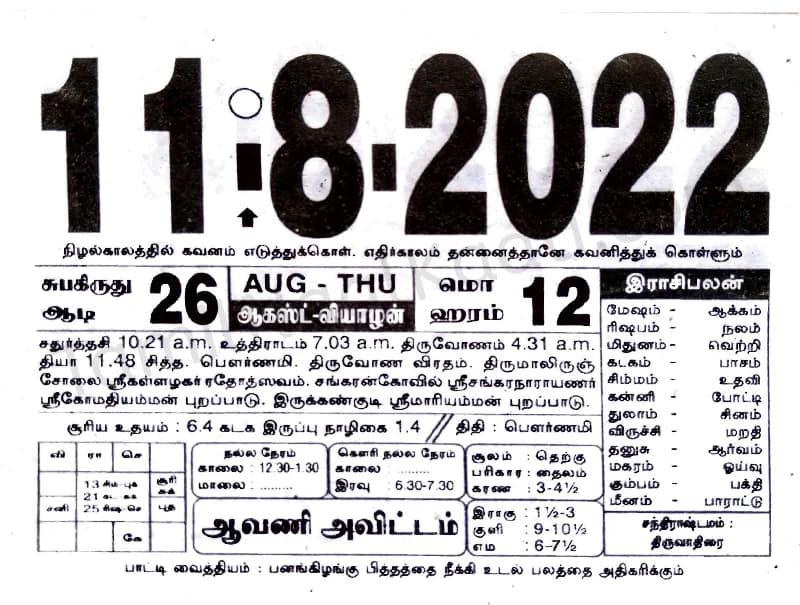 11-8-2022
நிழல்காலத்தில் கவனம் எடுத்துக்கொள். எதிர்காலம் தன்னைத்தானே கவனித்துக் கொள்ளும்
சுபகிருது ஆடி 26
AUG - THU
ஆகஸ்ட்-வியாழன்
மொஹரம் 12
சதுர்த்தசி 10.21 a.m. உத்திராடம் 7.03 a.m. திருவோணம் 4.31 a.m.
தியா 11.48 சித்த. பௌர்ணமி. திருவோண விரதம். திருமாலிருஞ்
சோலை ஸ்ரீகள்ளழகர் ரதோத்ஸவம். சங்கரன்கோவில் ஸ்ரீசங்கரநாராயணர்
ஸ்ரீகோமதியம்மன் புறப்பாடு. இருக்கண்குடி ஸ்ரீமாரியம்மன் புறப்பாடு.
சூரிய உதயம் : 6.4 கடக இருப்பு நாழிகை 1.4 // திதி : பௌர்ணமி
வி ரா செ
13 சிம-புக சூரி சுக்
21 கட-சுக
சனி 25 ரிஷ-செ புத
கே
நல்ல நேரம்
காலை : 12.30-1.30
மாலை : .........
கௌரி நல்ல நேரம்
காலை : .........
இரவு : 6.30-7.30
ஆவணி அவிட்டம்
சூலம் : தெற்கு
பரிகார : தைலம்
கரண : 3-4½
இராகு : 1½-3
குளி : 9-10½
எம : 6-7½
இராசிபலன்
மேஷம் - ஆக்கம்
ரிஷபம் - நலம்
மிதுனம் - வெற்றி
கடகம் - பாசம்
சிம்மம் - உதவி
கன்னி - போட்டி
துலாம் - சினம்
விருச்சி - மறதி
தனுசு - ஆர்வம்
மகரம் - ஓய்வு
கும்பம் - பக்தி
மீனம் - பாராட்டு
சந்திராஷ்டமம் :
திருவாதிரை
பாட்டி வைத்தியம் : பனங்கிழங்கு பித்தத்தை நீக்கி உடல் பலத்தை அதிகரிக்கும்